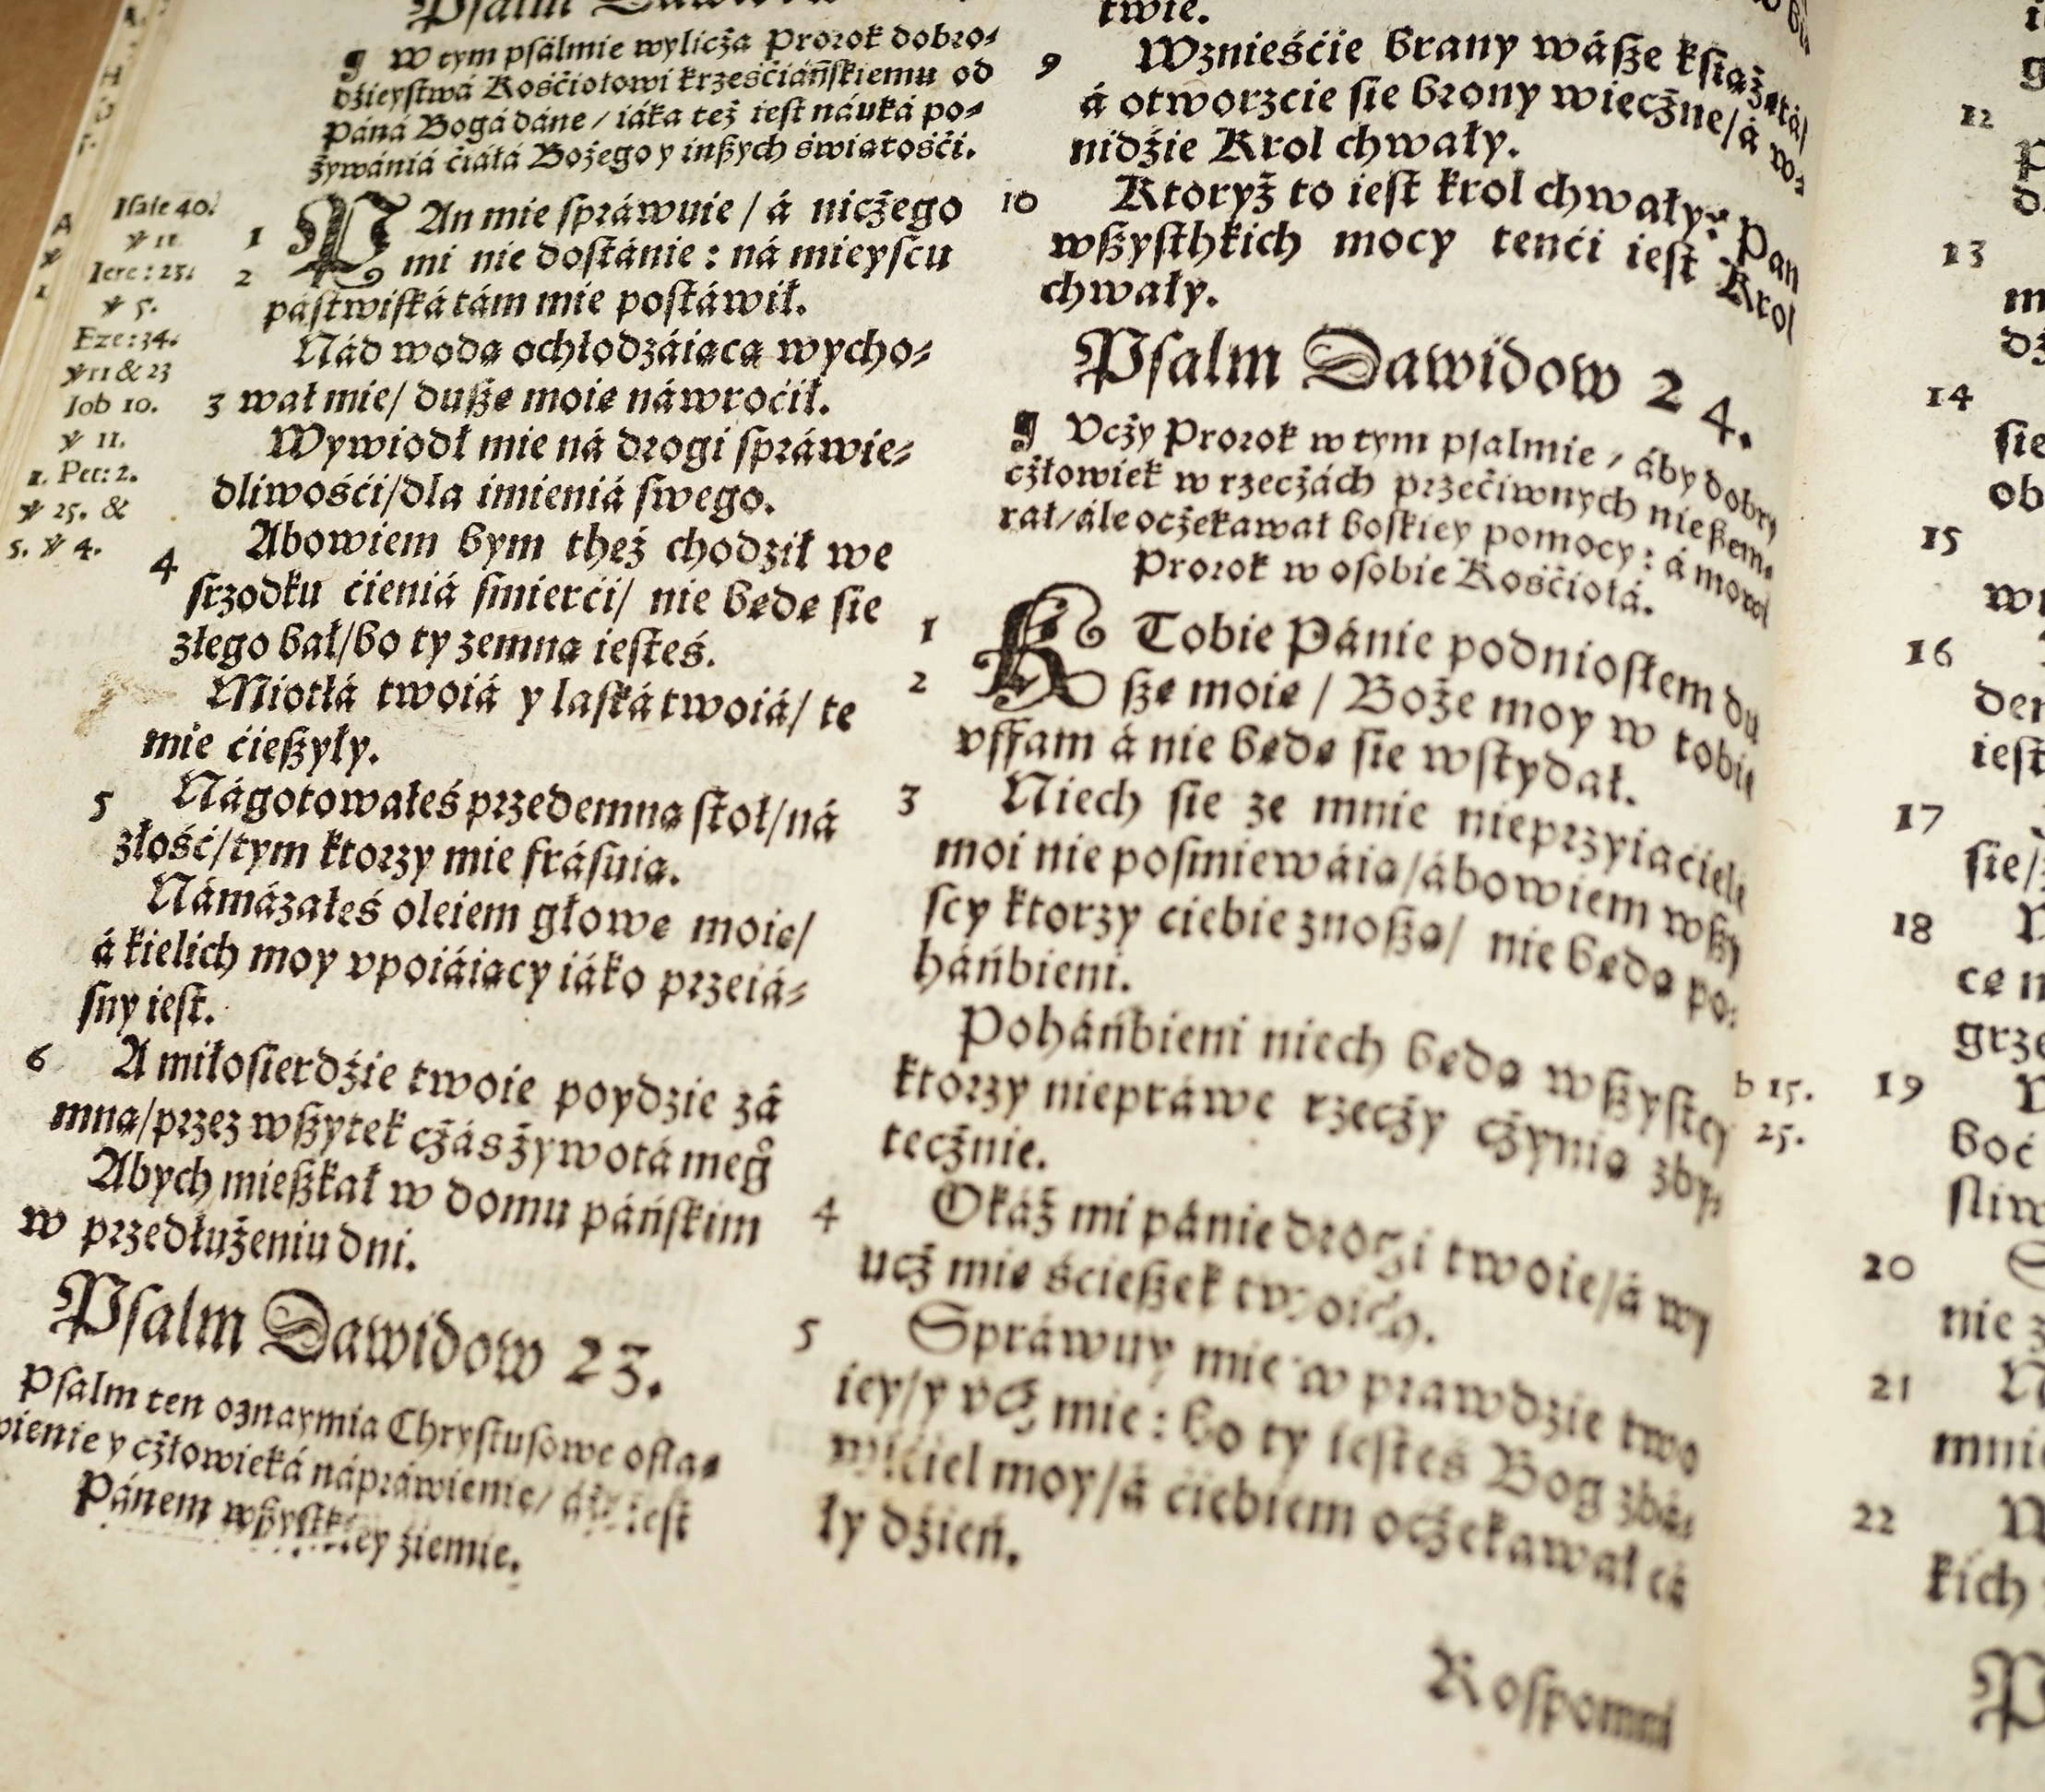 Psalm Dawidow
¶ W tym psálmie wylicża Prorok dobro⸗
dźieystwá Kościołowi krześciáńskiemu od
Páná Bogá dáne / iáka też iest náuká po⸗
żywániá ćiáłá Bożego y inßych świątośći.
Isaie 40.
℣ 11.
Iere: 23.
℣ 5.
Eze: 34.
℣ 11 & 23
Iob 10.
℣ 11.
1. Pet: 2.
℣ 25. &
5. ℣ 4.
1 PAn mie spráwuie / á nicżego
2 mi nie dostánie : ná mieyscu
pástwiská tám mie postáwił.
Nád wodą ochłodzáiącą wycho⸗
3 wał mie/ dußę moię náwroćił.
Wywiodł mie ná drogi spráwie⸗
dliwośći/dla imieniá swego.
4 Abowiem bym też chodził we
srzodku ćieniá śmierći/ nie będę się
złego bał/bo ty zemną iesteś.
Miotłá twoiá y laská twoiá/ te
mie ćießyły.
5 Nágotowałeś przedemną stoł/ná
złość/tym ktorzy mie frásuią.
Námázałeś oleiem głowę moię/
á kielich moy vpoiáiący iáko przeiá⸗
sny iest.
6 A miłosierdźie twoie poydzie zá
mną/przez wßytek cżás żywotá megͦ
Abych mießkał w domu páńskim
w przedłużeniu dni.
Psalm Dawidow 23.
Psalm ten oznaymia Chrystusowe osła⸗
wienie y cżłowieká nápráwienie/ áże iest
Pánem wßystkiey źiemie.
twie.
9 Wznieśćie brany wáße ksiąžętá/
á otworzcie się brony wiecżne/á w⸗
nidźie Krol chwały.
10 Ktoryż to iest krol chwały? Pan
wßysthkich mocy tenći iest Krol
chwały.
Psalm Dawidow 24.
¶ Vcży Prorok w tym psalmie / áby dobry
cżłowiek w rzecżách przećiwnych nie ßem⸗
rał/ále ocżekawał boskiey pomocy : á mowi
Prorok w osobie Kośćiołá.
1 K Tobie Pánie podniosłem du
2 ßę moię / Boże moy w tobie
vffam á nie będę się wstydał.
3 Niech się ze mnie nieprzyiaćiele
moi nie pośmiewáią/ábowiem wßy
scy ktorzy ciebie znoßą/ nie będą po⸗
háńbieni.
Poháńbieni niech będą wßystcy
ktorzy niepráwe rzecży cżynią zby⸗
tecżnie.
4 Okáż mi pánie drogi twoie/á wy
ucż mię śćießek twoich.
5 Spráwuy mie w prawdzie two
iey/y vcż mie : bo ty iesteś Bog zbá⸗
wićiel moy/á ćiebiem ocżekawał cá
ły dźień.
Rospomni
b 15.
25.
12
13
14
15
16
17
18
19
20
21
22